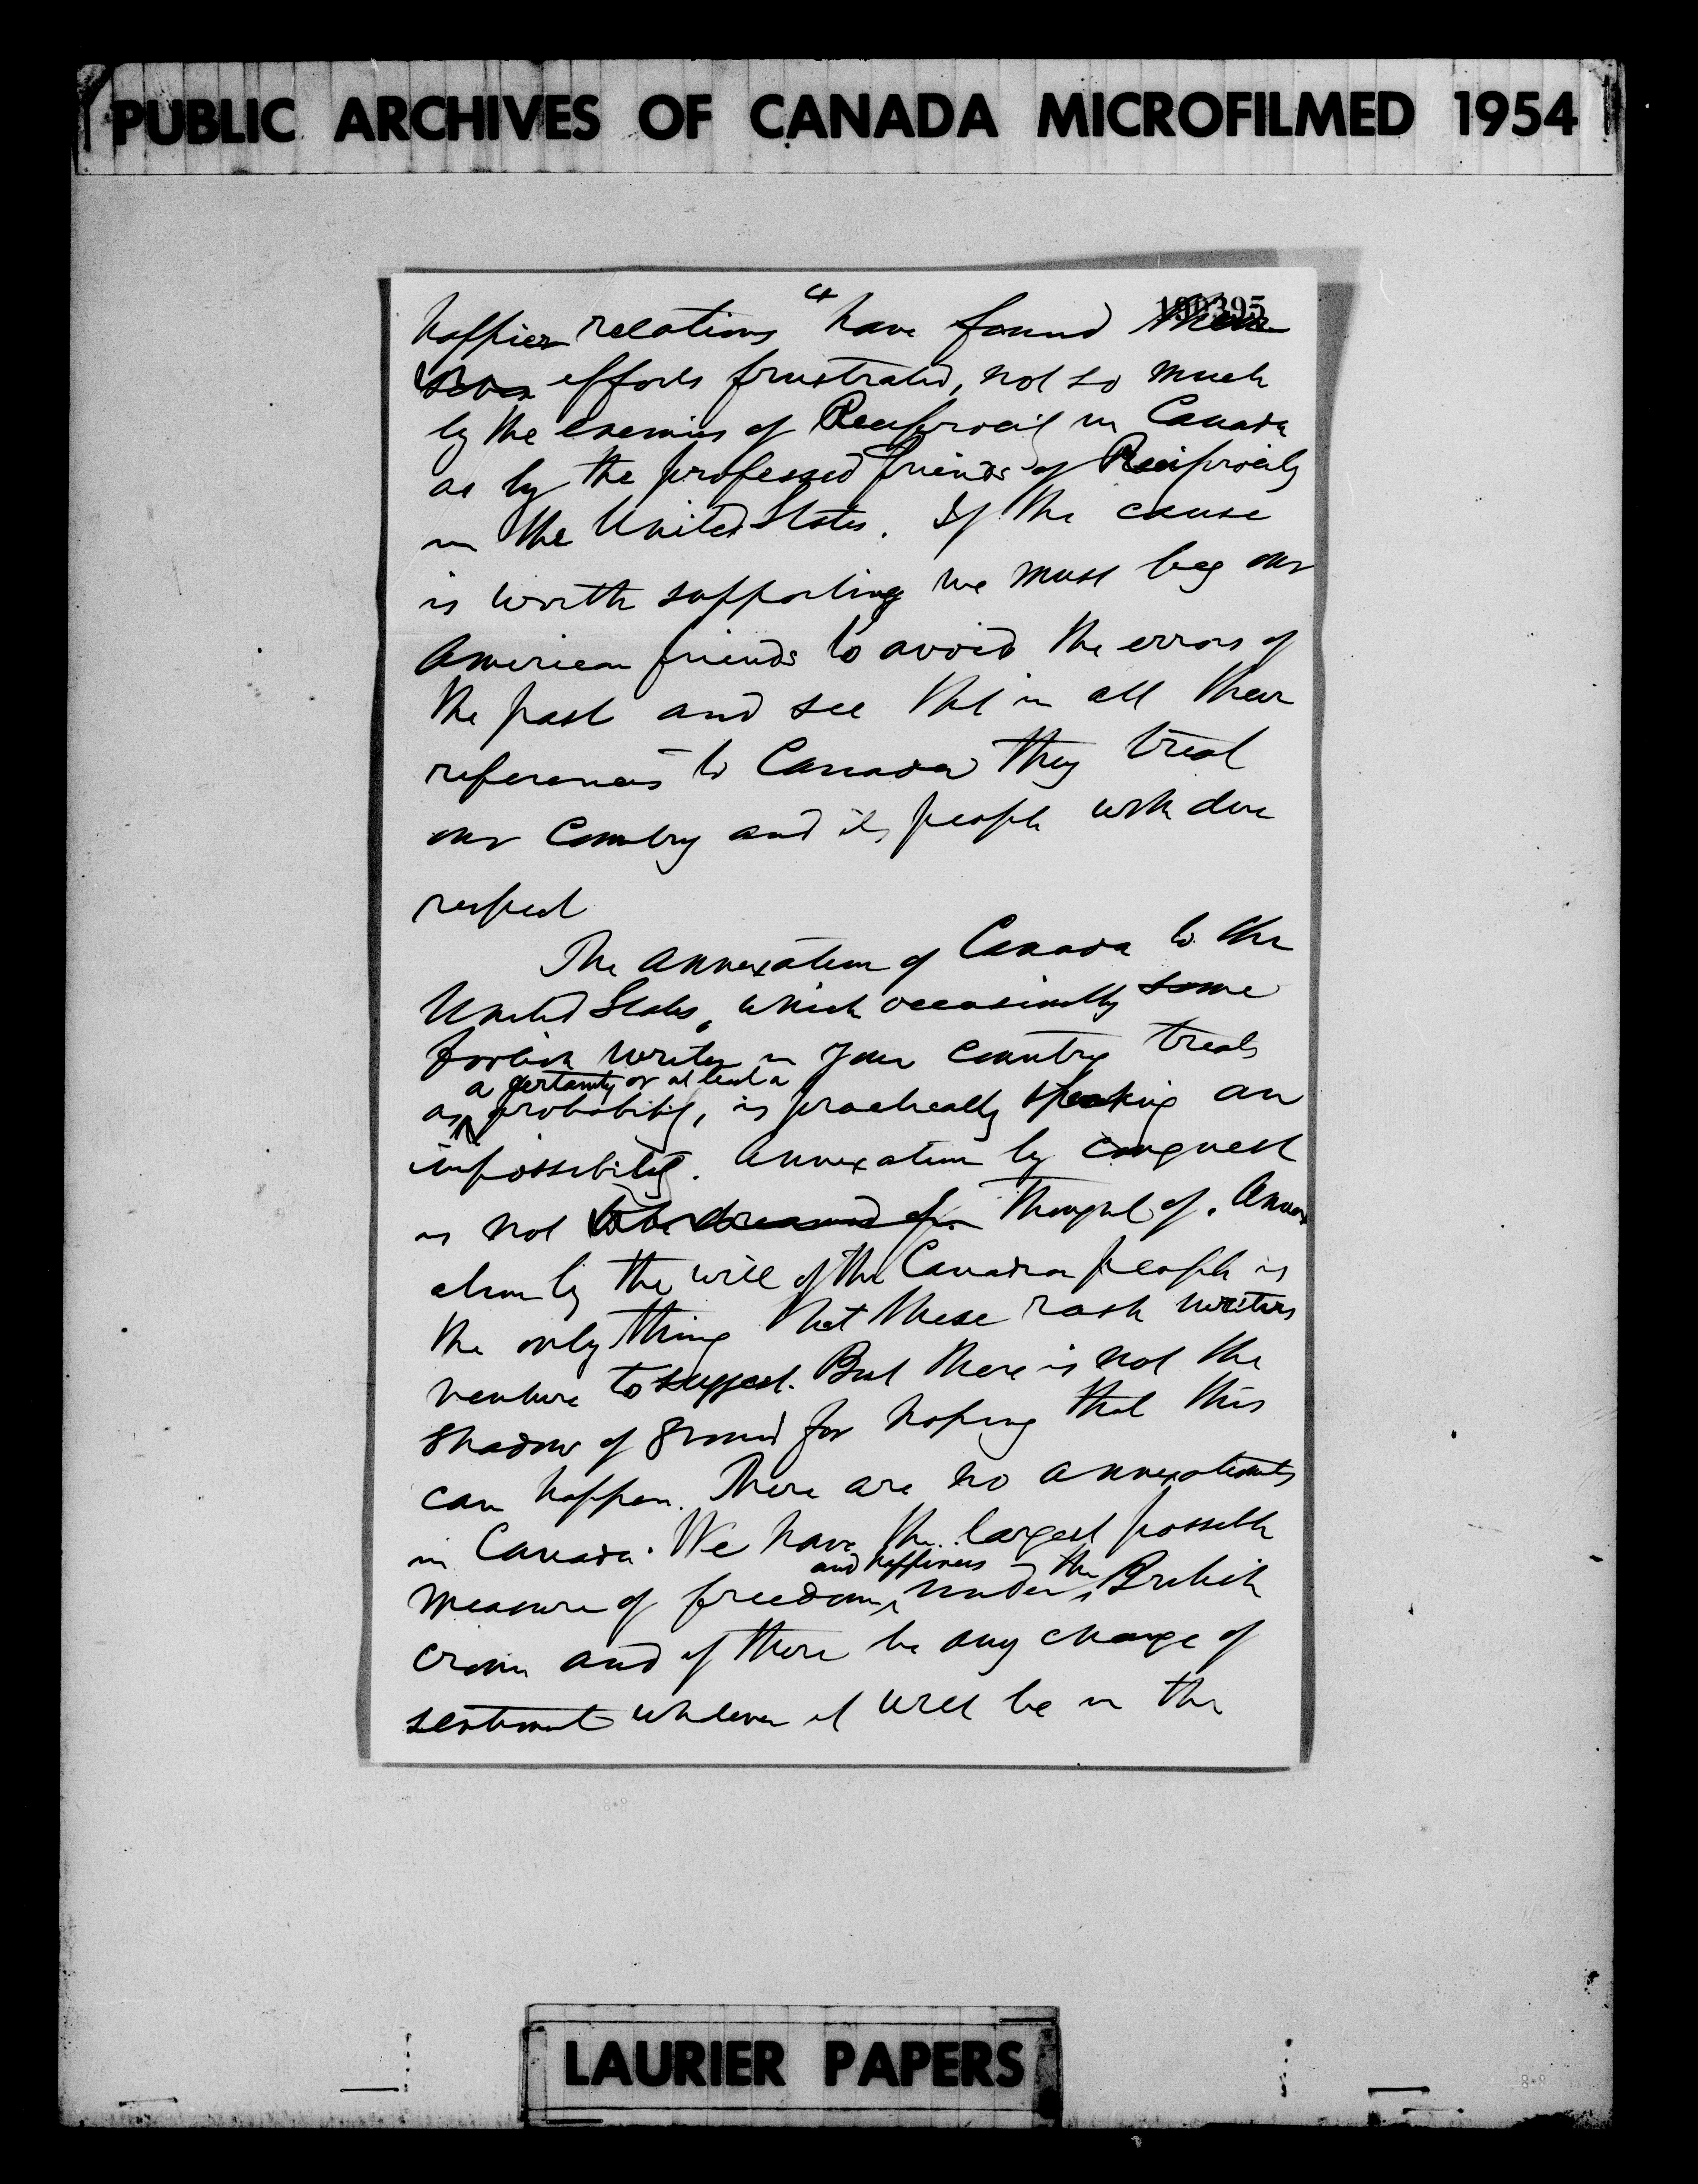 PUBLIC ARCHIVES OF CANADA MICROFILMED 1954
199395
happier relations" have found their
efforts frustrated, not so much
by the enemies of Reciprocity in Canada
as by the professed friends of Reciprocity
in the United States. If the cause
is worth supporting we must beg our
American friends to avoid the errors of
the past and see that in all their
references to Canada they treat
our Country and its people with due
respect
The annexation of Canada to the
United States, which occasionally some
foolish writer in your country treats
a certainty or at least a
as probability, is practically speaking an
impossibility. Annexation by conquest
is not to be dreamed of or thought of. Annex
ation by the will of the Canadian people is
the only thing that these rash writers
venture to suggest. But there is not the
shadow of ground for hoping that this
can happen. There are no annexationists
in Canada. We have the largest possible
and happiness the
measure of freedom under British
crown and if there be any change of
sentiment whatever it will be in the
LAURIER PAPERS